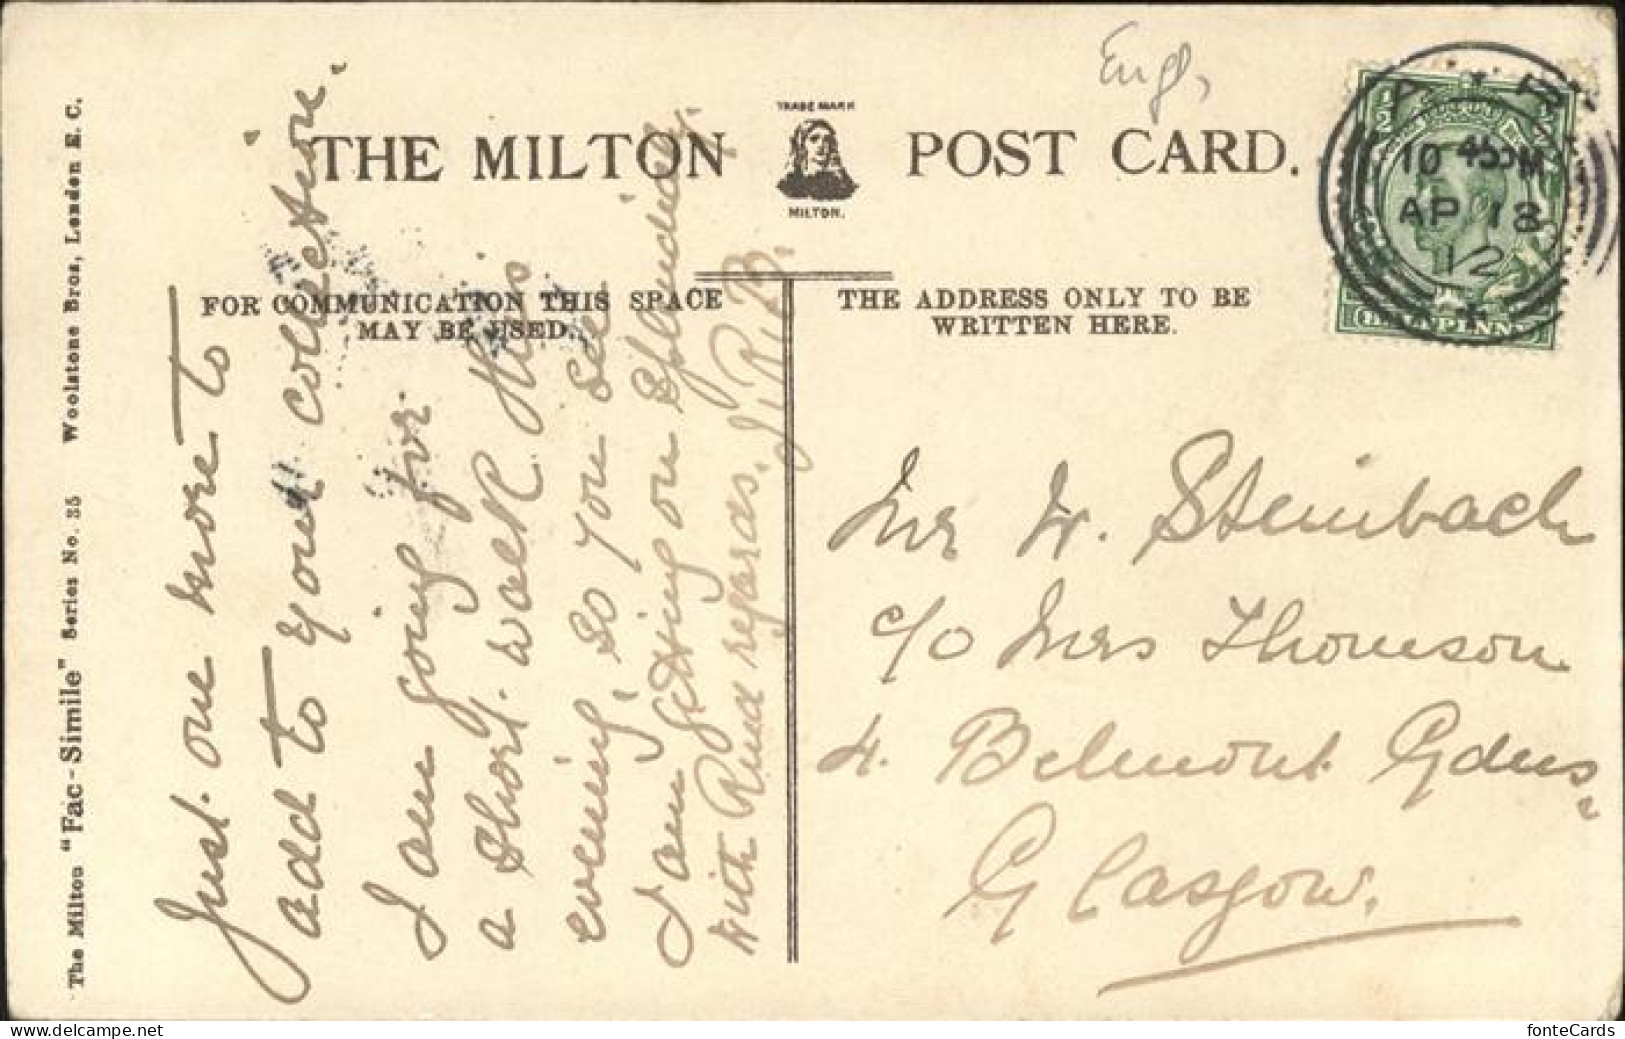 Engl,
THE MILTON POST CARD.
TRADE MARK
MILTON.
FOR COMMUNICATION THIS SPACE
MAY BE USED.
THE ADDRESS ONLY TO BE
WRITTEN HERE.
½
HALFPENNY
10 45PM
AP 13
12
The Milton "Fac-Simile" Series No. 35 Woolstone Bros, London E. C.
Just one more to
add to your collection.
I am going for
a short walk this
evening, so you see
I am getting on splendidly.
With Kind regards. J. R. B.
Mr W. Steinbach
c/o Mrs Thomson
4. Belmont Gdens,
Glasgow.
fonteCards